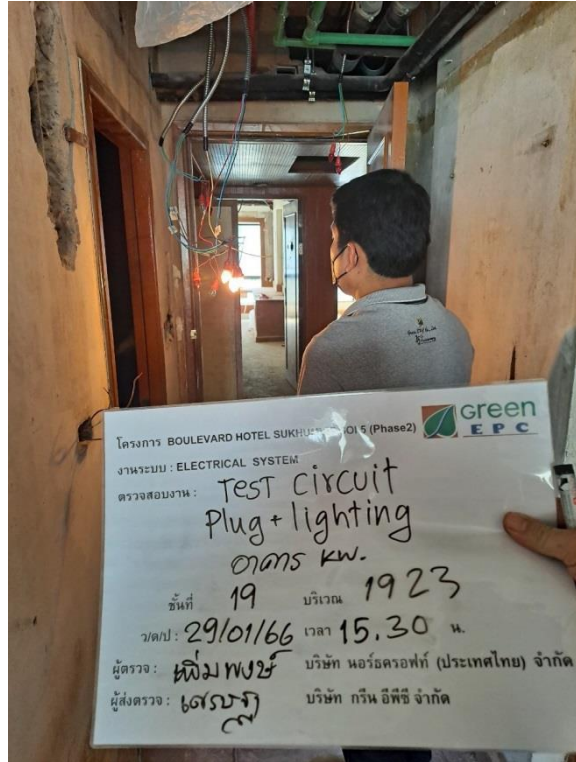 Green
EPC
โครงการ BOULEVARD HOTEL SUKHUMVIT SOI 5 (Phase2)
งานระบบ : ELECTRICAL SYSTEM
ตรวจสอบงาน : TEST circuit
Plug + lighting
อาคาร KW.
ชั้นที่ 19 บริเวณ 1923
ว/ด/ป : 29/01/66 เวลา 15.30 น.
ผู้ตรวจ : เพิ่มพงษ์ บริษัท นอร์ธครอฟท์ (ประเทศไทย) จำกัด
ผู้ส่งตรวจ : บริษัท กรีน อีพีซี จำกัด